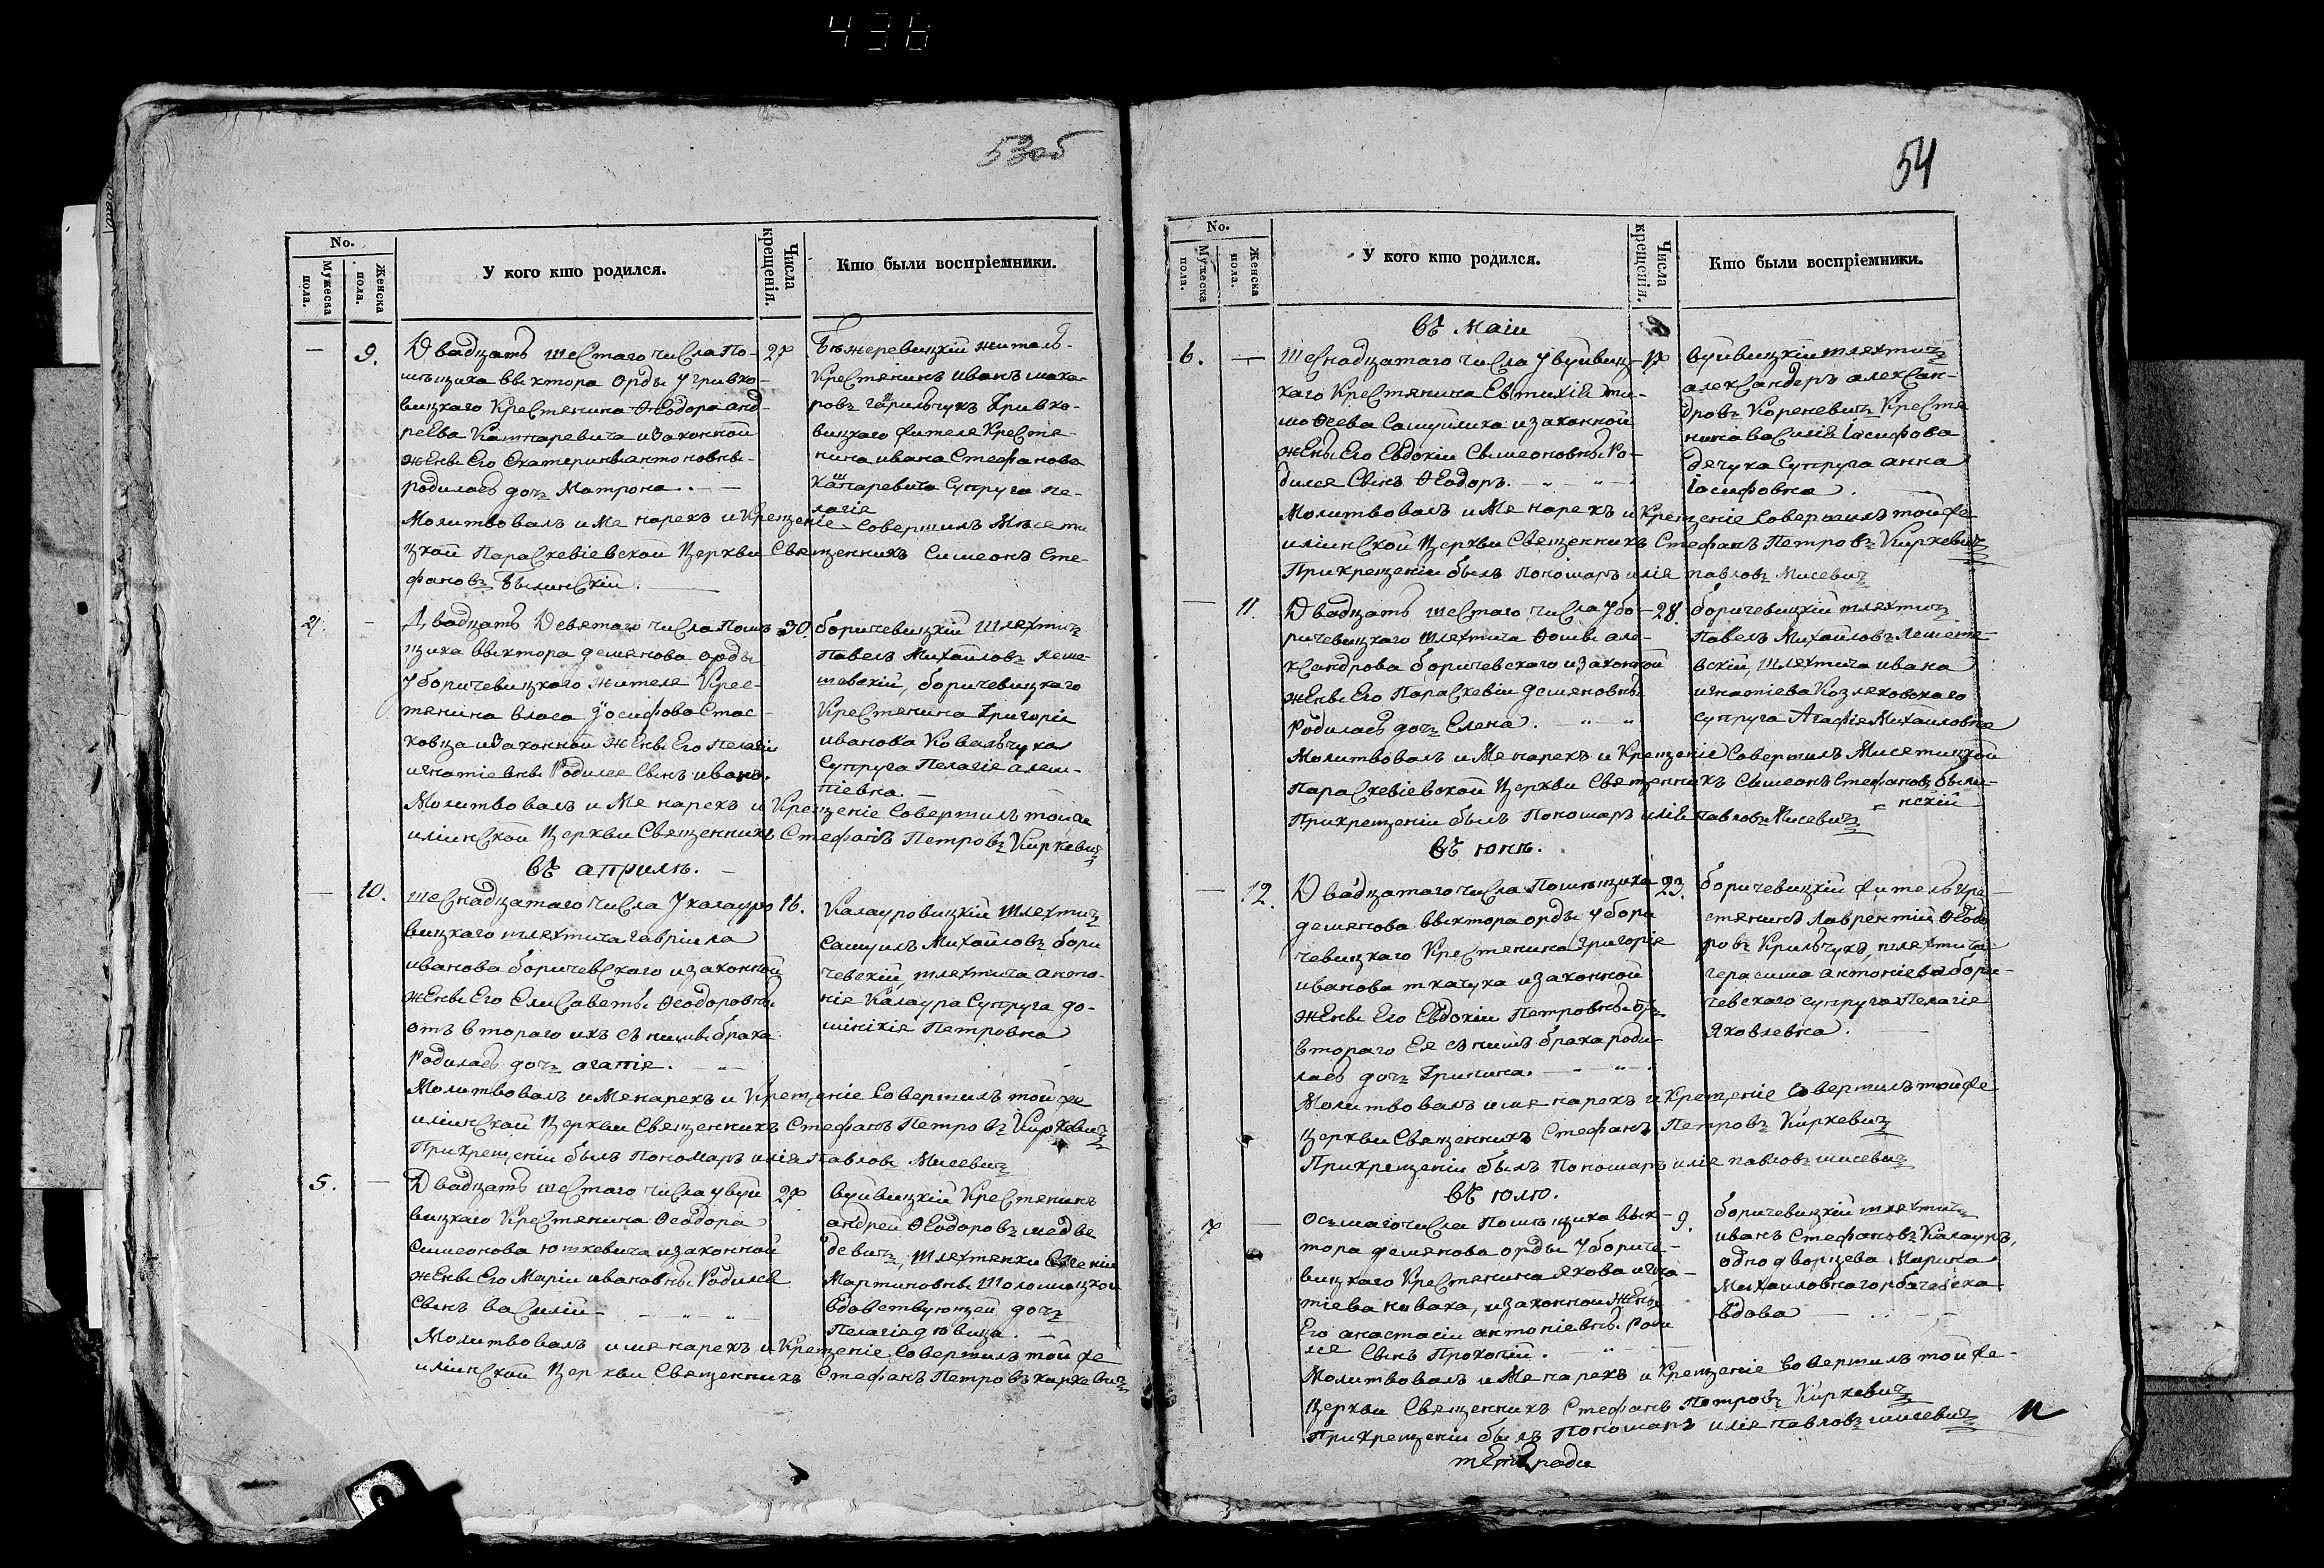 438
53об
No.
Мужеска пола.
Женска пола.
У кого кто родился.
Числа крещенія.
Кто были воспріемники.
9.
Двадцать шестаго числа По-
мѣщика Виктора Орды у гривко-
вицкаго Крестянина Ѳеодора анд-
реева Кашпаревича и Законной
жены Его Екатерины антоновны
родилась дочь Матрона.
27
Бѣжеревицкій житель
Крестянинъ Иванъ мака-
ровъ Гаврильчукъ Гривко-
вицкаго жителя Крестя-
нина ивана Стефанова
Кашпаревича Супруга пе-
лагія
Молитвовалъ имя нарекъ и Крещеніе Совершилъ Мисяти-
цкой Параскевіевской Церкви Священникъ Симеонъ Сте-
фановъ Былинскій.
4.
Двадцать Девятаго числа Помѣ-
щика Виктора демянова орды
у боричевицкаго жителя Крес-
тянина власа Іосифова Стас-
ковца и Законной жены Его пелагіи
игнатіевны Родился Сынъ иванъ.
30.
боричевицкій шляхтичъ
павелъ Михайловъ Леше-
шевскій, боричевицкаго
Крестянина Григорія
иванова Ковальчука
Супруга Пелагія
Молитвовалъ имя нарекъ и Крещеніе Совершилъ тойже
иліинской Церкви Священникъ Стефанъ Петровъ Киркевичъ
въ априлѣ.
10.
шеснадцатаго числа у калауро
вицкаго шляхтича гавріила
иванова боричевскаго и законной
жены Его Елисаветы Ѳеодоровны
отъ втораго ихъ съ нимъ брака
родилась дочь агапія.
16.
Калауровицкій шляхтичъ
самуилъ Михайловъ бори
чевскій, шляхтича анто-
нія Калаура Супруга до-
минікія Петровна
Молитвовалъ имя нарекъ и Крещеніе Совершилъ той же
иліинской Церкви Священникъ Стефанъ Петровъ Киркевичъ
При крещеніи былъ Пономаръ илія Павловъ Мисевичъ
5.
Двадцать шестаго числа у вуй
вицкаго Крестянина Ѳеодора
Симеонова юшкевича и законной
жены Его Маріи ивановны Родился
Сынъ василій
27
вуйвицкій Крестянинъ
андрей Ѳеодоровъ медве
девичъ, шляхтянки
Мартиновны
вдовствующей дочь
Пелагія дѣвица.
Молитвовалъ имя нарекъ и Крещеніе Совершилъ той же
иліинской Церкви Священникъ Стефанъ Петровъ киркевичъ
54
No.
Мужеска пола.
Женска пола.
У кого кто родился.
Числа крещенія.
Кто были воспріемники.
въ маіи
6.
шеснадцатаго числа у вуйвиц-
каго Крестянина Евтихія ти-
моѳеева Самуйлика и законной
жены Его Евдокіи Симеоновны Ро-
дился Сынъ Ѳеодоръ.
17
вуйвицкій шляхтичъ
александеръ алексан-
дровъ Кореневичъ Крестя
нина василія Іосифова
дячука Супруга анна
Іосифовна.
Молитвовалъ имя нарекъ и Крещеніе Совершилъ той же
иліинской Церкви Священникъ Стефанъ Петровъ Киркевичъ
При крещеніи былъ пономаръ илія павловъ Мисевичъ
11.
Двадцать шестаго числа у бо-
ричевицкаго шляхтича Ѳомы але-
ксандрова боричевскаго и законной
жены Его Параскевіи демяновны
родилась дочь Елена.
28.
боричевицкій шляхтичъ
Павелъ Михайловъ Лешеше-
вскій, шляхтича ивана
игнатіева Козляковскаго
супруга Агафія Михайловна
Молитвовалъ имя нарекъ и Крещеніе Совершилъ Мисятицкой
Параскевіевской Церкви Священникъ Симеонъ Стефановъ были-
нскій
При крещеніи былъ Пономаръ илія Павловъ Мисевичъ
въ юнѣ.
12.
Двадцатаго числа Помѣщика
демянова виктора орды у бори
чевицкаго Крестянина григорія
иванова ткачука и законной
жены Его Евдокіи Петровны отъ
втораго Ея съ нимъ брака роди-
лась дочь Гринина.
23.
боричевицкій житель Кре-
стянинъ лаврентій Ѳеодо
ровъ Крильчукъ, шляхтича
герасима антоніева бори-
чевскаго супруга Пелагія
Яковлевна.
Молитвовалъ имя нарекъ и Крещеніе Совершилъ той же
Церкви Священникъ Стефанъ Петровъ Киркевичъ
При крещеніи былъ Пономаръ илія павловъ мисевичъ
въ юлю.
7
осьмаго числа Помѣщика вик-
тора демянова орды у бориче-
вицкаго Крестянина якова игна-
тіева новака, и законной жены
Его анастасіи антоніевны роди
лся Сынъ Прокопій.
9.
боричевицкій шляхтичъ
иванъ Стефановъ Калауръ,
однодворцева Марина
Михаиловна
вдова
Молитвовалъ имя нарекъ и Крещеніе Совершилъ той же
Церкви Священникъ Стефанъ Петровъ Киркевичъ
При крещеніи былъ Пономаръ илія павловъ мисевичъ
тетради